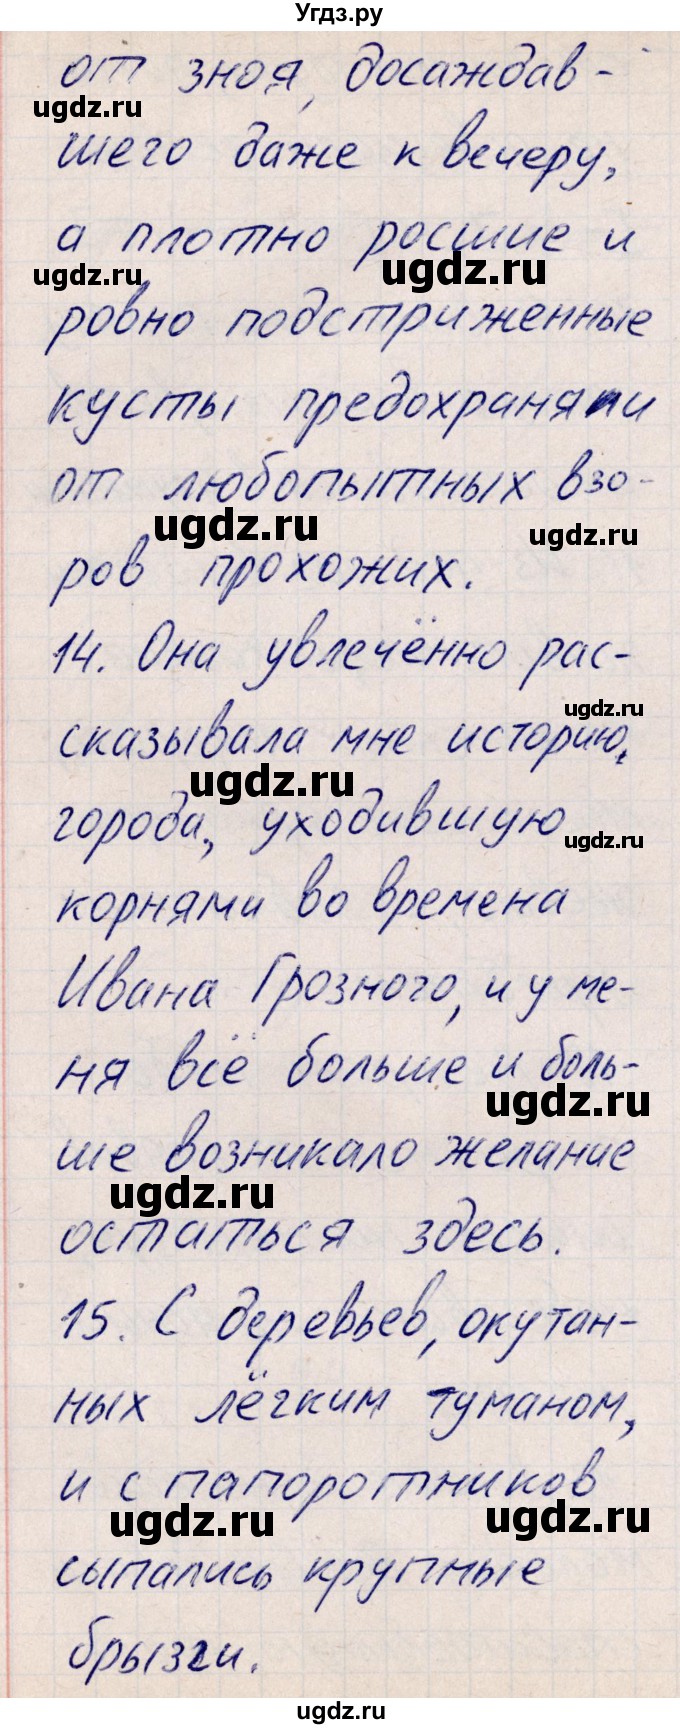 Угдз.ру
от зноя, досаждав-
ugdz.ru
шего даже к вечеру,
а плотно росшие и
ugdz.ru ugdz.ru
ровно подстриженные
кусты предохраняли
от любопытных взо-
ugdz.ru ugdz.ru
ров прохожих.
14. Она увлечённо рас-
ugdz.ru
сказывала мне историю,
ugdz.ru
города, уходившую
ugdz.ru
корнями во времена
Ивана Грозного, и у ме-
ня всё больше и боль-
ugdz.ru
ше возникало желание
ugdz.ru
остаться здесь.
15. С деревьев, окутан-
ных лёгким туманом,
и с папоротников
ugdz.ru ugdz.ru
сыпались крупные
брызги.
ugdz.ru